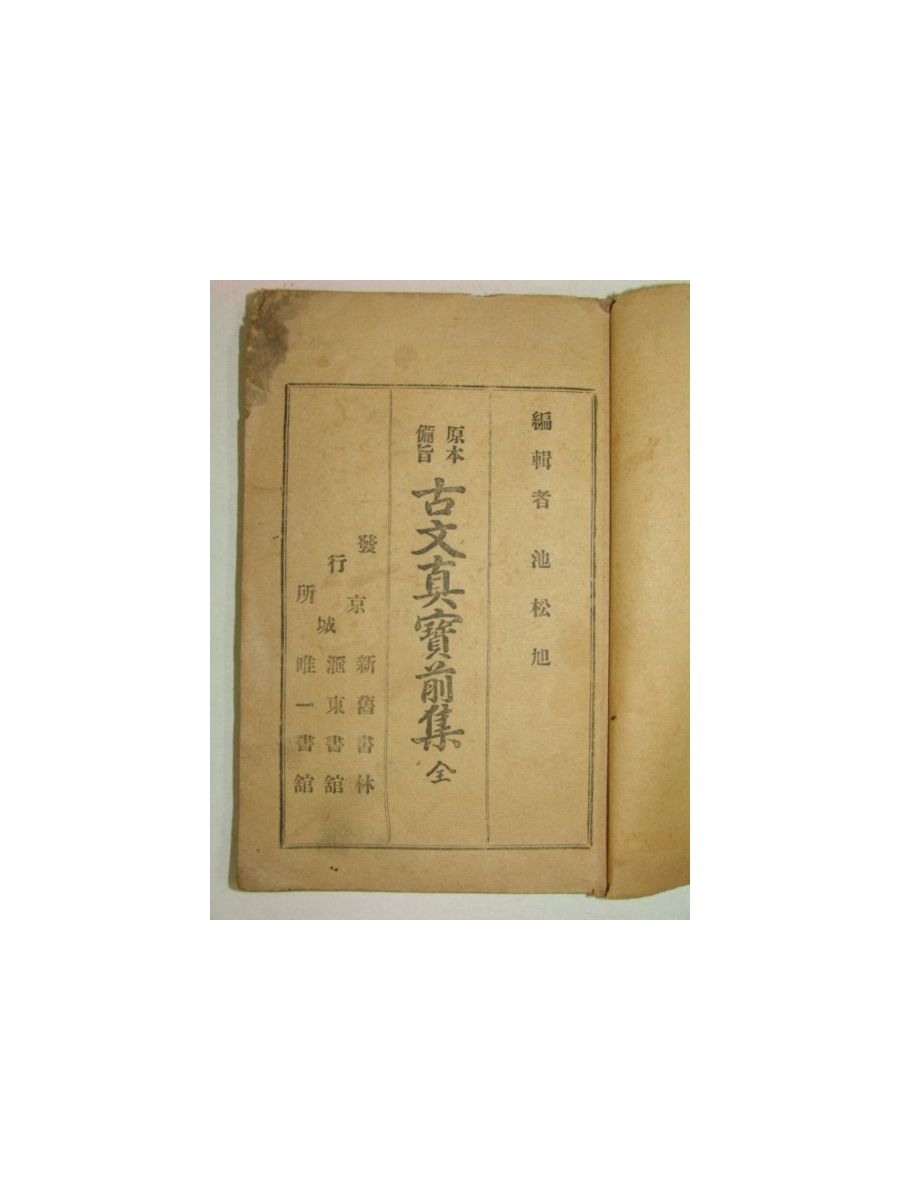 編輯者 池松旭
原本
備旨
古文真寳前集 全
發行所
京城
新舊書林
滙東書舘
唯一書舘